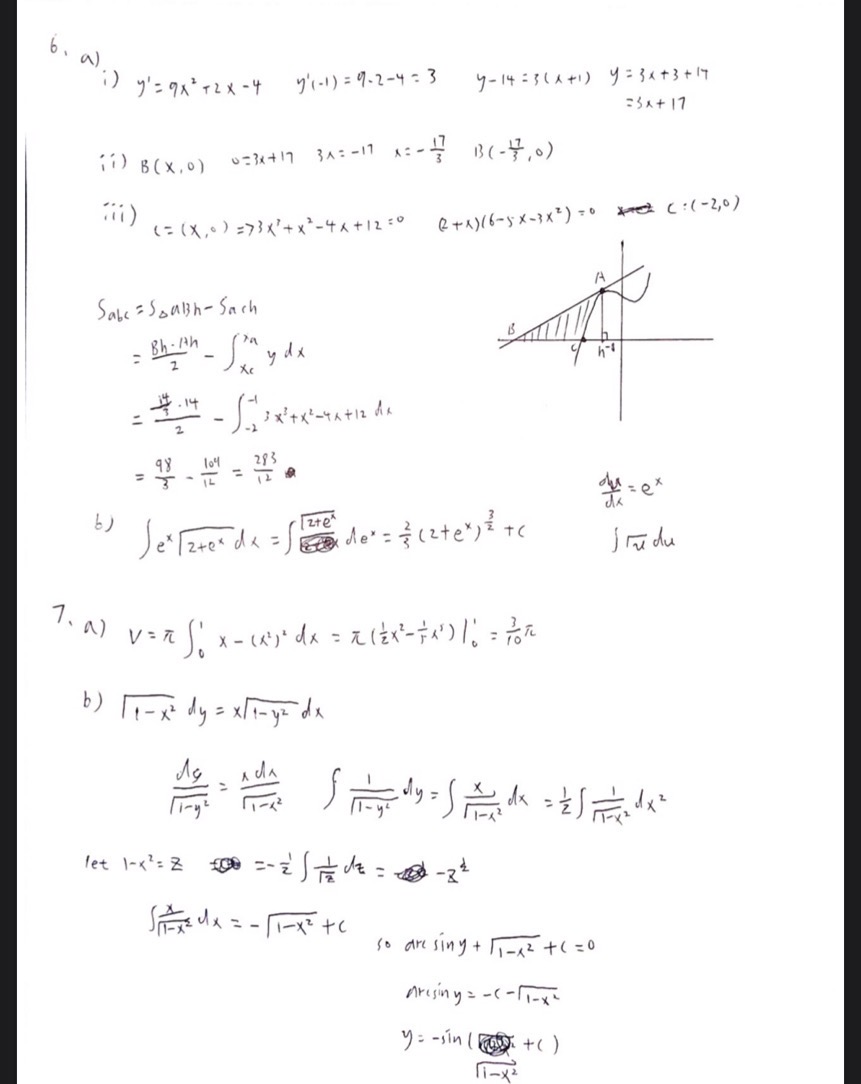 6. a)
i) y' = 9x² + 2x - 4   y'(-1) = 9 - 2 - 4 = 3   y - 14 = 3(x+1)   y = 3x + 3 + 14
= 3x + 17
ii) B(x, 0)   0 = 3x + 17   3x = -17   x = -17/3   B(-17/3, 0)
iii) C = (x, 0) => 3x³ + x² - 4x + 12 = 0   (2+x)(6-5x-3x²) = 0   C: (-2, 0)
S abc = S△ABh - Sach
= Bh·Ah/2 - ∫_{xc}^{xa} y dx
= ·14/2 - ∫_{-2}^{-1} 3x³ + x² - 4x + 12 dx
= 98/3 - 104/12 = 283/12
A
B
C
h -1
b) ∫e^x √(2+e^x) dx = ∫√(2+e^x) de^x = 2/3 (2+e^x)^{3/2} + C
du/dx = e^x
∫√u du
7. a) V = π ∫_0^1 x - (x²)² dx = π(1/2 x² - 1/5 x⁵)|_0^1 = 3/10 π
b) √(1-x²) dy = x√(1-y²) dx
dy/√(1-y²) = x dx/√(1-x²)   ∫ 1/√(1-y²) dy = ∫ x/√(1-x²) dx = 1/2 ∫ 1/√(1-x²) dx²
let 1-x² = z   = -1/2 ∫ 1/√z dz = -z^{1/2}
∫ x/√(1-x²) dx = -√(1-x²) + C
so arc sin y + √(1-x²) + C = 0
arcsin y = -C - √(1-x²)
y = -sin( √(1-x²) + C )